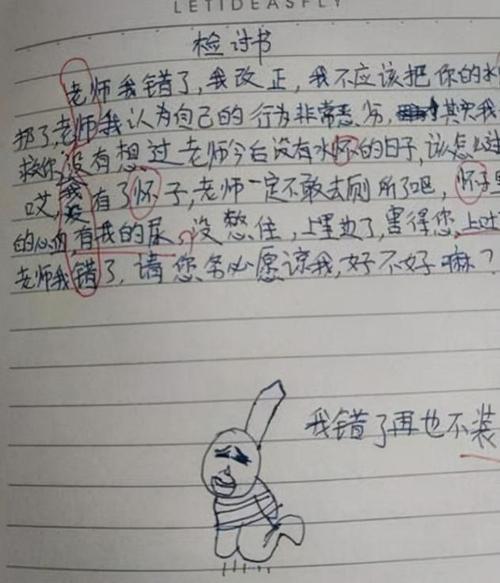 LETIDEASFLY
检讨书
老师我错了,我改正,我不应该把你的水
了,老师我认为自己的行为非常恶劣,其实我
救你,没有想过老师今后没有水怀的日子,该怎么过
哎,我有了怀子,老师一定不敢去厕所了吧,怀子里
的心血,有我的尿,没憋住,上里边了,害得您,上吐
老师我错了,请您务必愿谅我,好不好嘛?
我错了再也不装